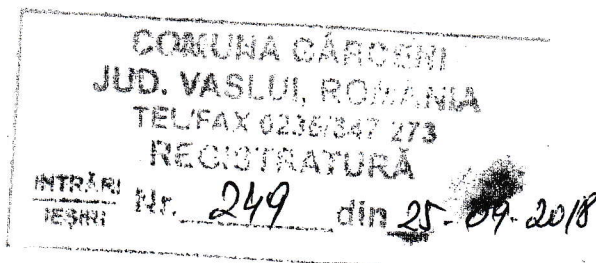 COMUNA GÂRCENI
JUD. VASLUI, ROMANIA
TEL/FAX 0235/347 273
REGISTRATURĂ
INTRĂRI
IEȘIRI Nr. 249 din 25-09-2018